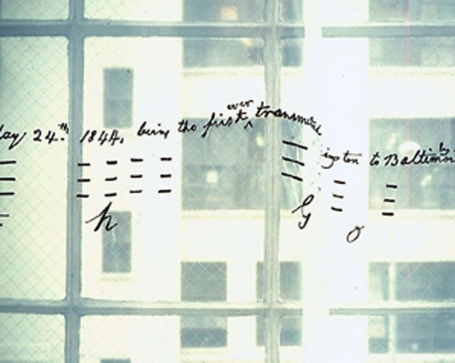 day 24th. 1844, being the first ever transmitted
ington to Baltimore by
h G o